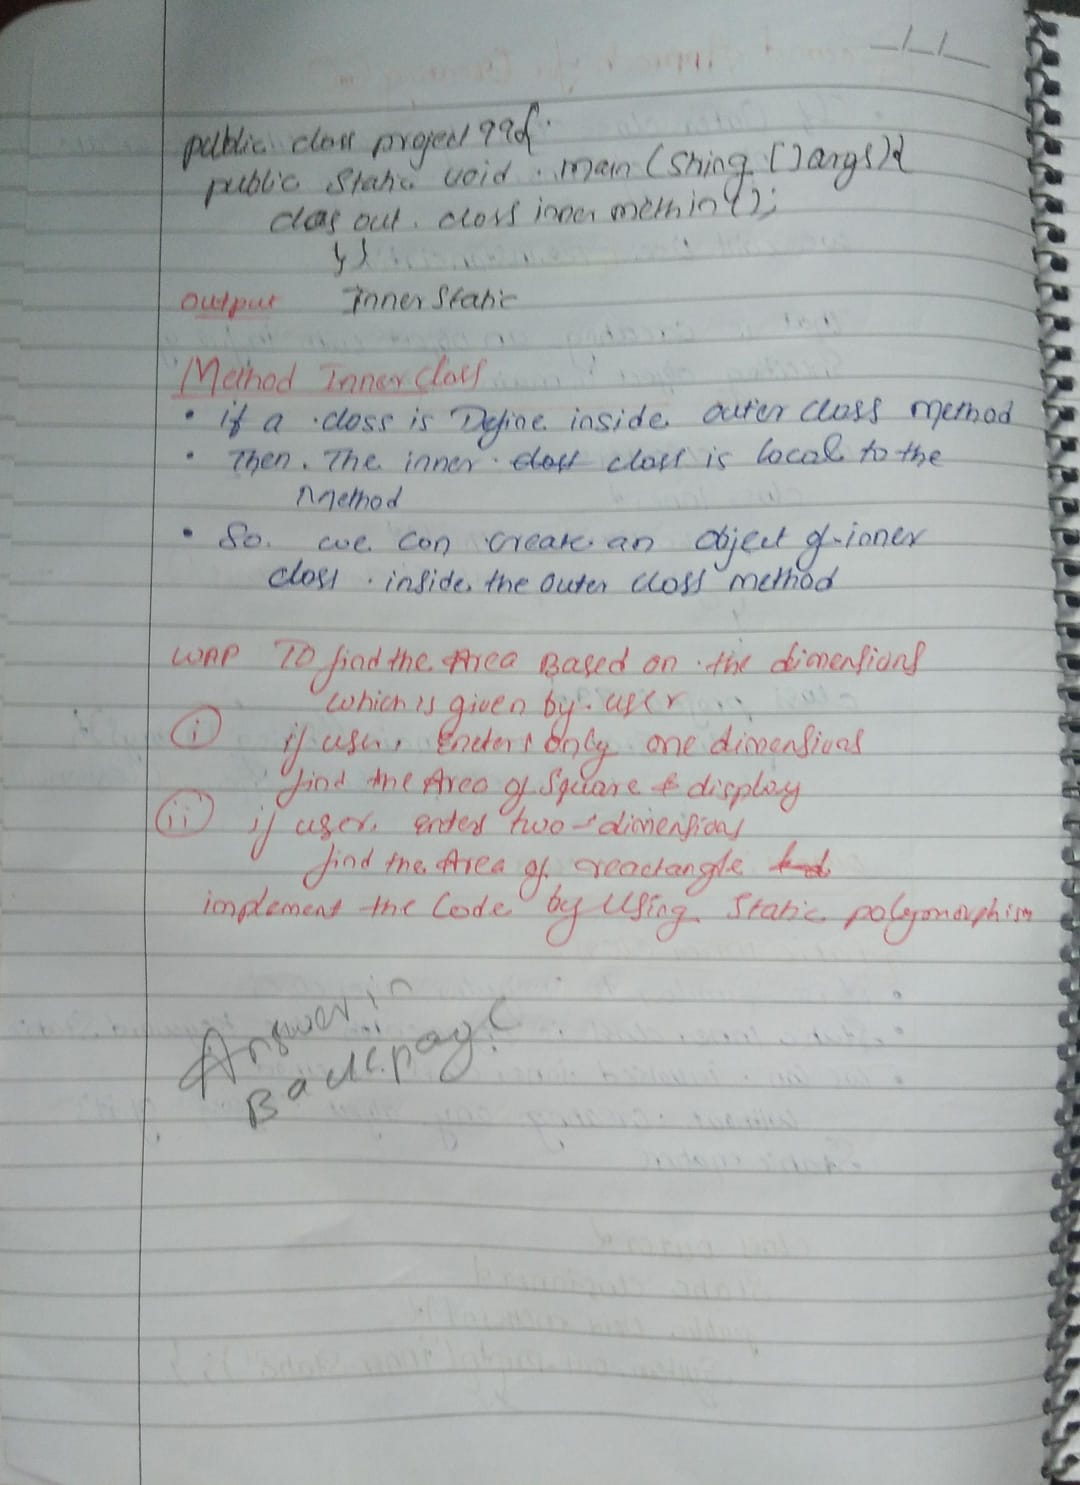 public class project 99{
public static void main (String []args){
class out . class inner methin1();
}}
output Inner Static
Method Inner Class
• if a class is Define inside outer class method
• Then The inner class is local to the
method
• So. we can create an object of inner
class inside the outer class method
WAP TO find the Area Based on the dimensions
which is given by user
(i) if user Enters only one dimensions
find the Area of Square & display
(ii) if user enters two dimensions
find the Area of reactangle
implement the Code by Using Static polymorphism
Answer in
Back page